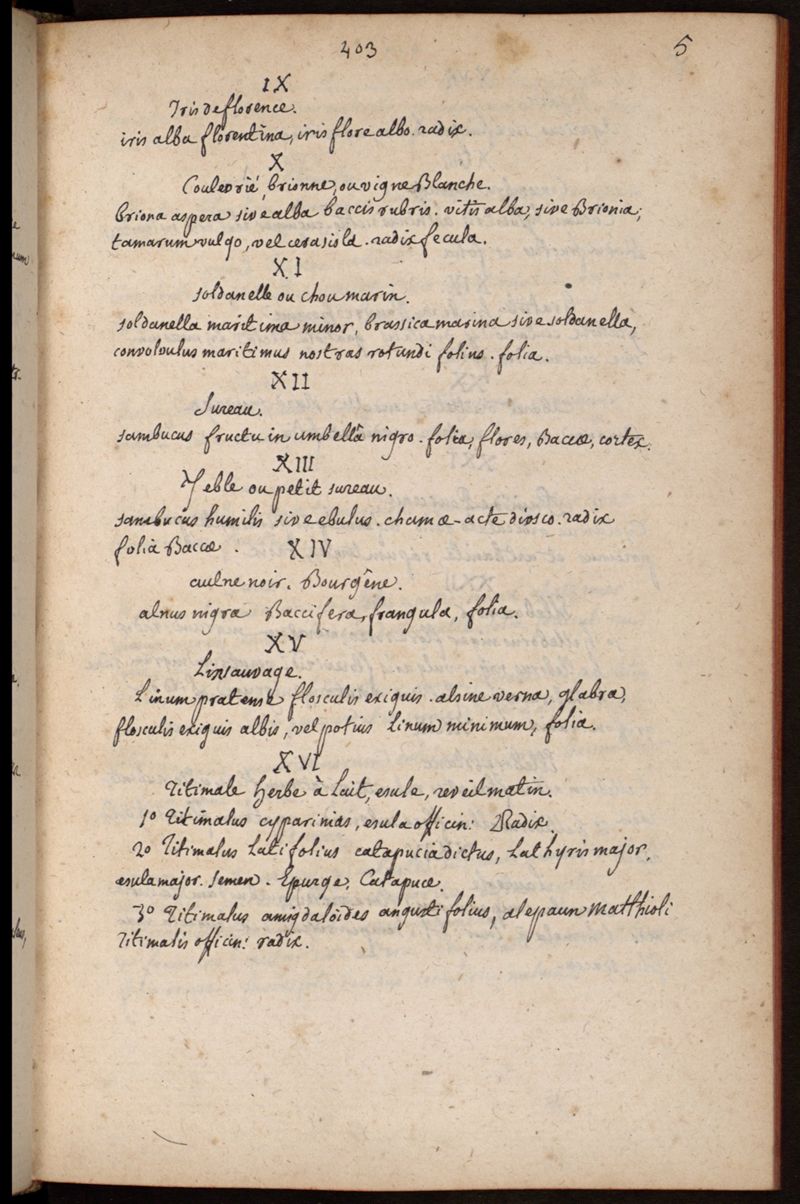 403 5
IX
Iris de florence.
iris alba florentina, iris flore albo. radix.
X
Couleurié, brionne, ou vigne Blanche.
briona aspera sive alba baccis rubris. vitis alba, sive Brionia;
tamarum vulgo, vel cerasiola. radix fecula.
XI
soldanelle ou chou marin.
soldanella maritima minor, brassica marina sive soldanella,
convolvulus maritimus nostras rotundi folius. folia.
XII
Sureau.
sambucus fructu in umbellâ nigro. folia, flores, Baccæ, cortex.
XIII
Yeble ou petit sureau.
sambucus humilis sive ebulus. chamæ-acte diosco. radix
folia Baccæ.
XIV
aulne noir. Bourgêne.
alnus nigra Baccifera, frangula, folia.
XV
Lin sauvage.
Linum pratense flosculis exiguis. alsine verna, glabra,
flosculis exiguis albis, vel potius Linum minimum, folia.
XVI
Titimale herbe à Lait, esule, reveil matin.
1º Titimalus cyparissias, esula officin: Radix.
2º Titimalus Latifolius catapucia dictus, Lathyris major,
esula major. semen. Epurge, Catapuce.
3º Titimalus amigdaloides angustifolius, alepaum Matthioli
Titimalis officin: radix.